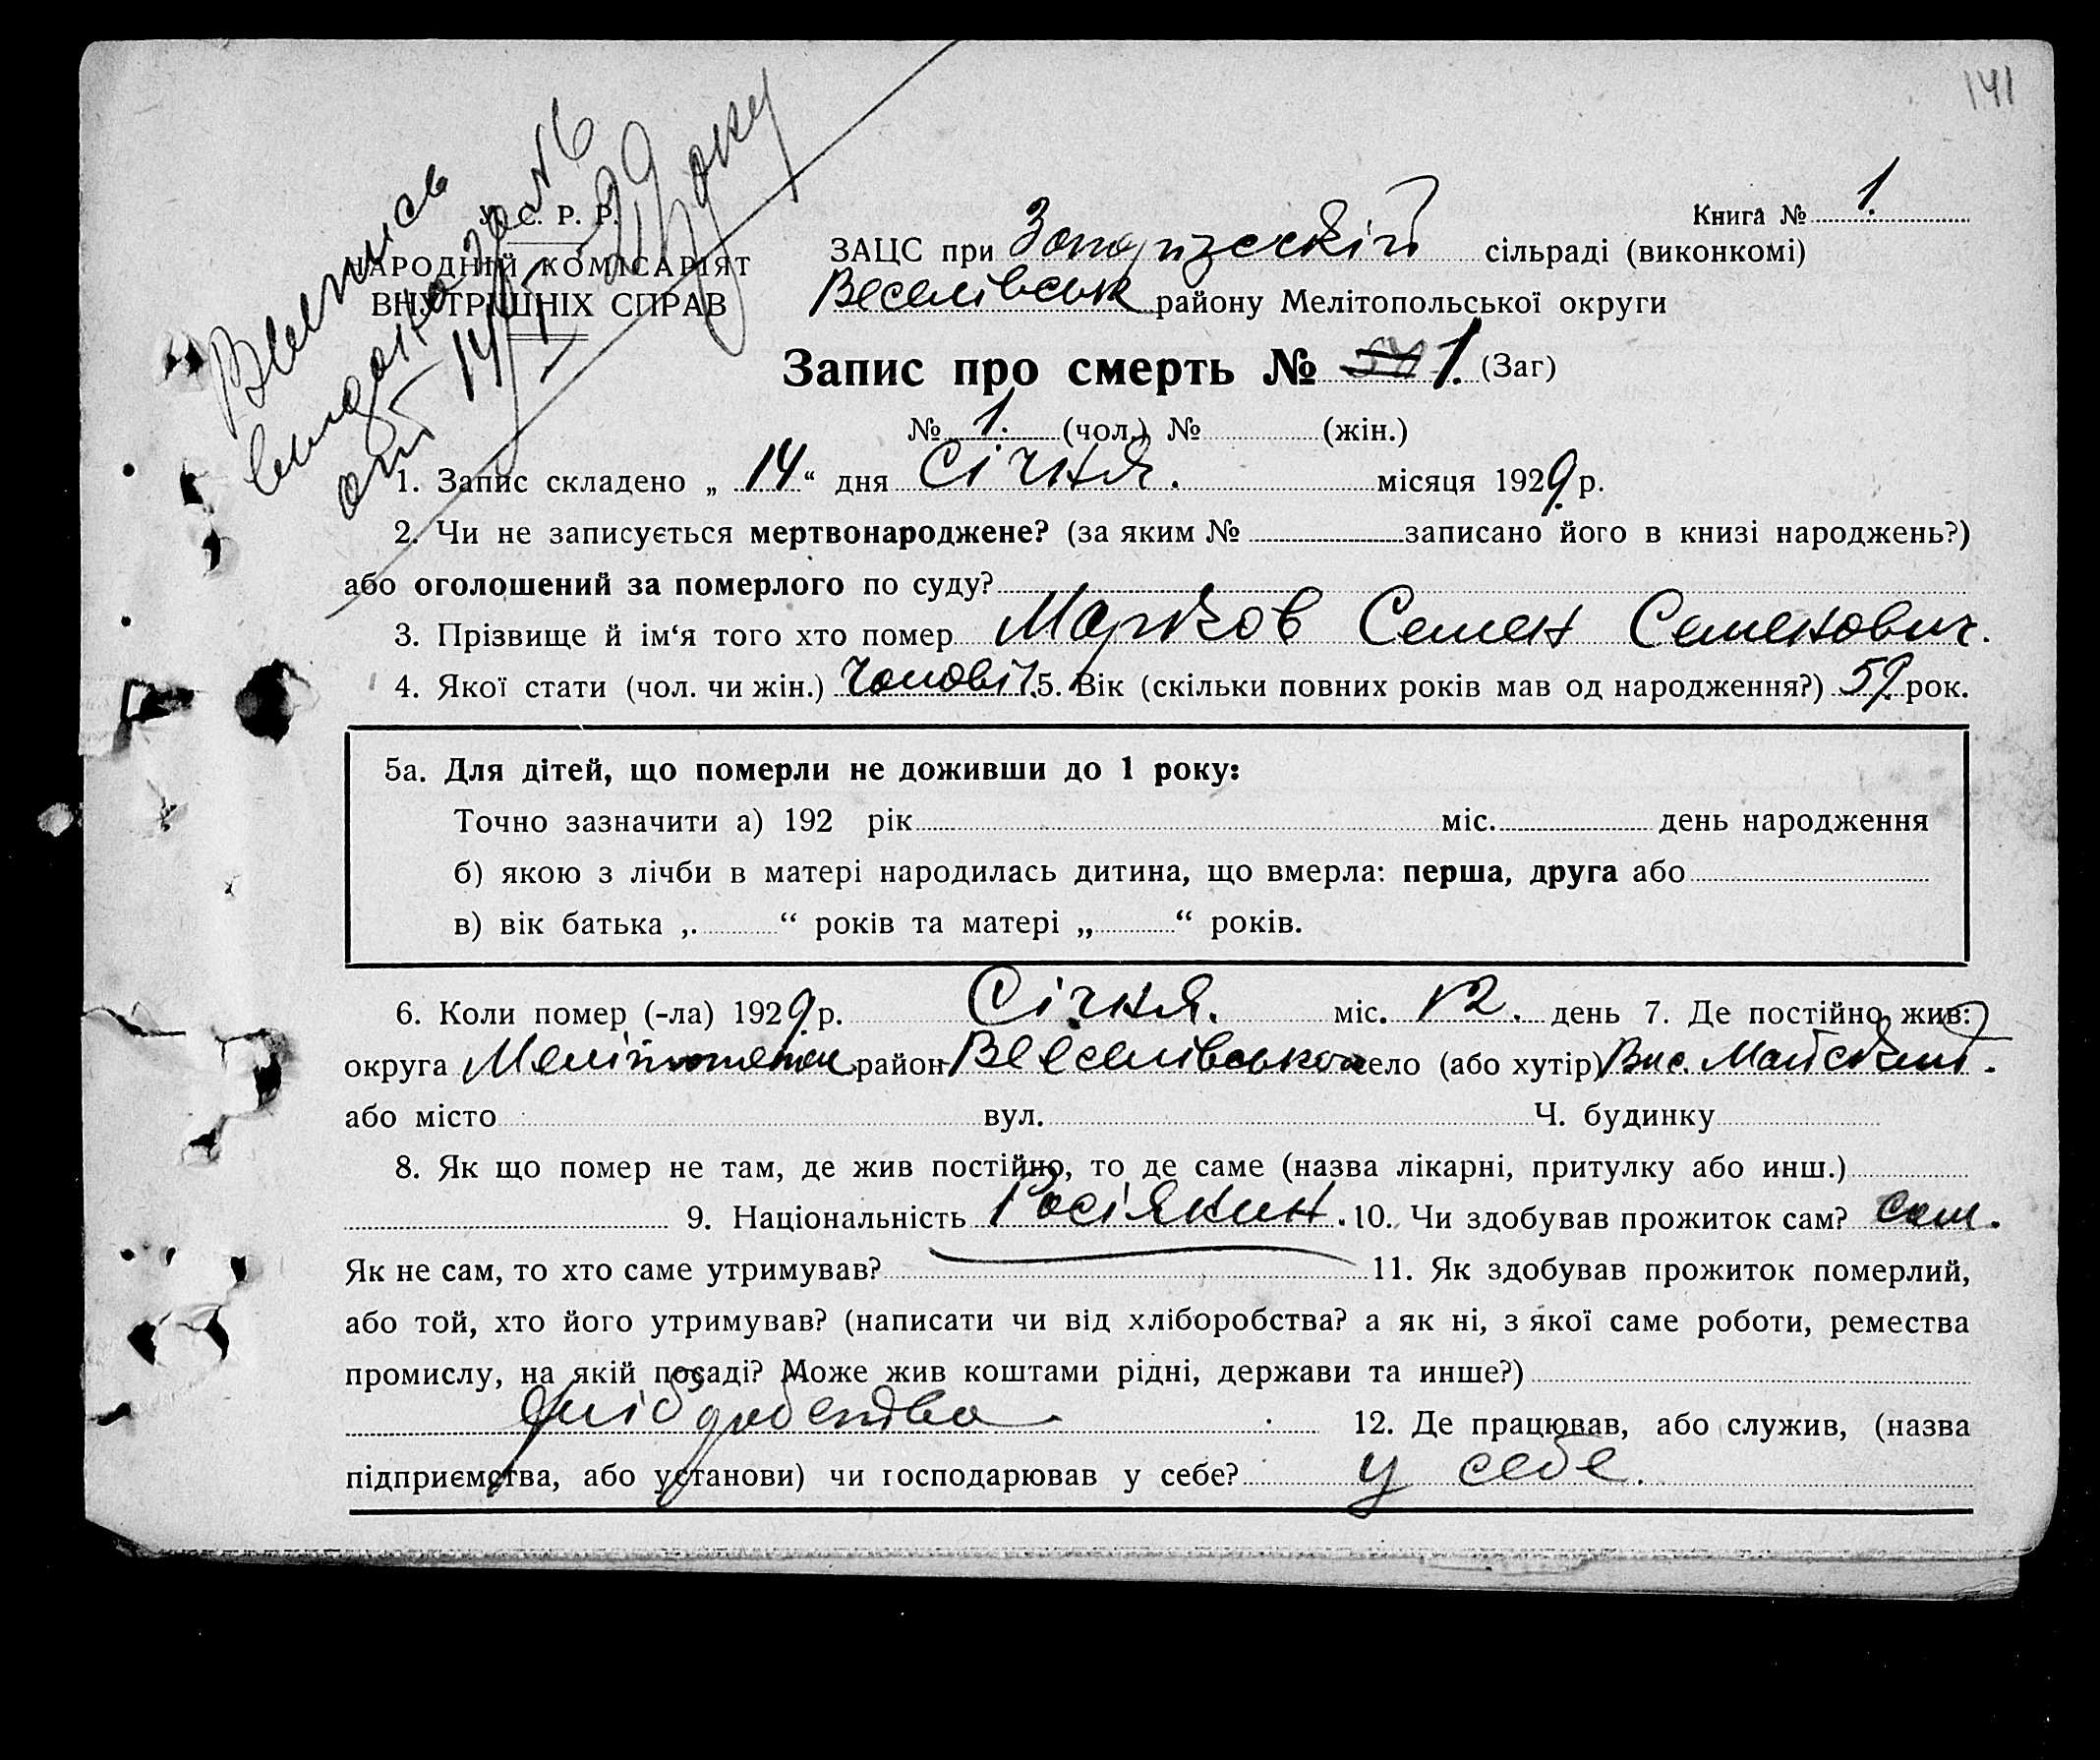 141
Выпись
выдана за № 6
от 14/I 29 року
У. С. Р. Р.
НАРОДНІЙ КОМІСАРІЯТ
ВНУТРІШНІХ СПРАВ
Книга № 1.
ЗАЦС при Запорізській сільраді (виконкомі)
Веселівськ району Мелітопольської округи
Запис про смерть № 1. (Заг)
№ 1. (чол.) № (жін.)
1. Запис складено „ 14 “ дня Січня. місяця 1929 р.
2. Чи не записується мертвонароджене? (за яким № записано його в книзі народжень?)
або оголошений за померлого по суду?
3. Прізвище й ім‘я того хто помер Марков Семен Семенович.
4. Якої стати (чол. чи жін.) Чоловіч. 5. Вік (скільки повних років мав од народження?) 59 рок.
5а. Для дітей, що померли не доживши до 1 року:
Точно зазначити а) 192 рік міс. день народження
б) якою з лічби в матері народилась дитина, що вмерла: перша, друга або
в) вік батька „ “ років та матері „ “ років.
6. Коли помер (-ла) 1929 р. Січня. міс. 12. день 7. Де постійно жив:
округа район село (або хутір) Вис. Майський.
або місто вул. Ч. будинку
8. Як що помер не там, де жив постійно, то де саме (назва лікарні, притулку або инш.)
9. Національність Росіянин. 10. Чи здобував прожиток сам? сам.
Як не сам, то хто саме утримував? 11. Як здобував прожиток померлий,
або той, хто його утримував? (написати чи від хліборобства? а як ні, з якої саме роботи, ремества
промислу, на якій посаді? Може жив коштами рідні, держави та инше?)
хліборобства. 12. Де працював, або служив, (назва
підприємства, або установи) чи господарював у себе? у себе.